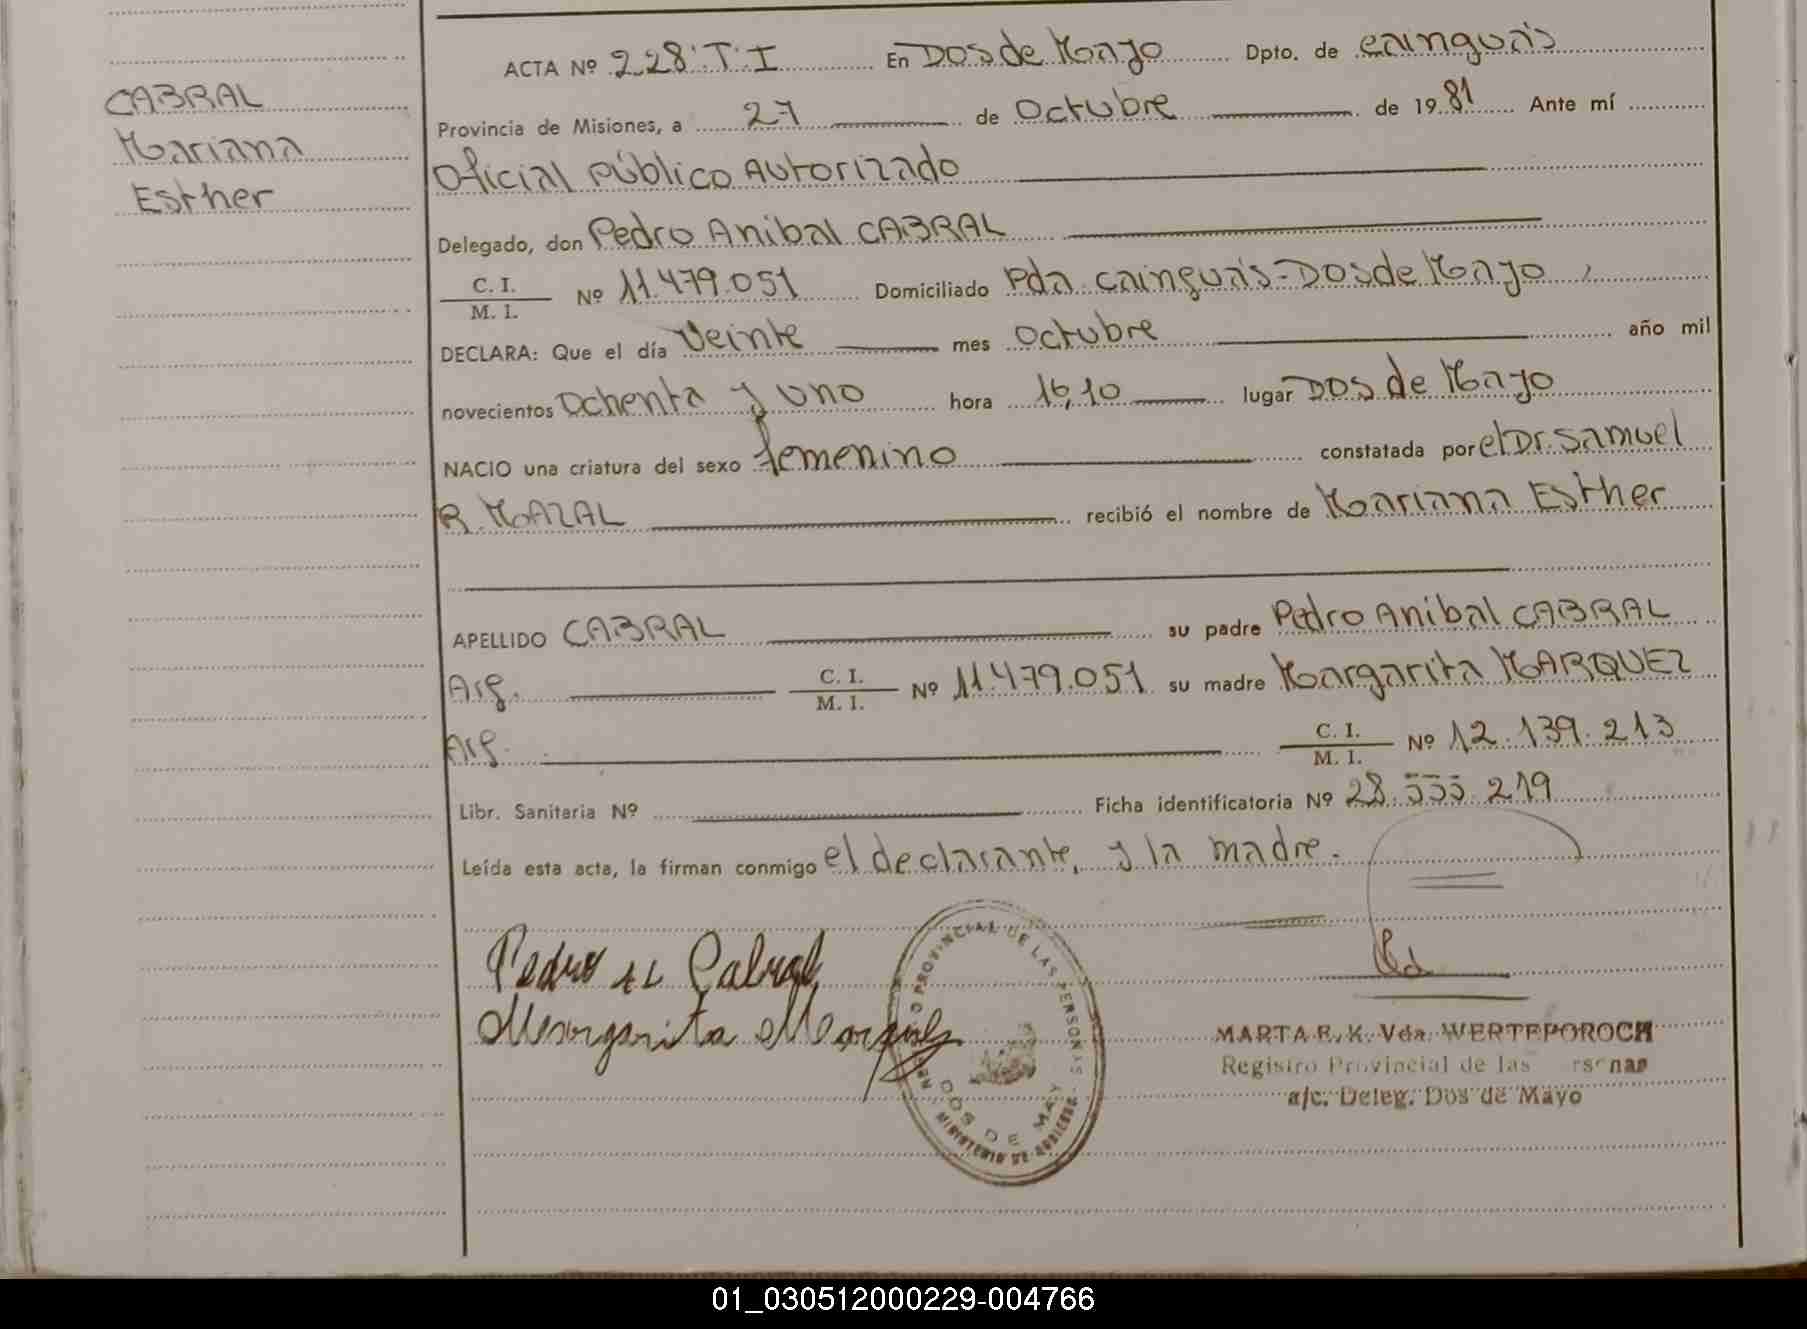 CABRAL
Mariana
Esther
ACTA Nº 228.T.I En Dos de Mayo Dpto. de Cainguás
Provincia de Misiones, a 27 de Octubre de 1981 Ante mí
Oficial Público Autorizado
Delegado, don Pedro Anibal CABRAL
C. I.
M. I. Nº 11.479.051 Domiciliado Pda. Cainguás-Dos de Mayo,
DECLARA: Que el día Veinte mes Octubre año mil
novecientos Ochenta y Uno hora 16,10 lugar Dos de Mayo
NACIO una criatura del sexo femenino constatada por el Dr. Samuel
R. MAZAL recibió el nombre de Mariana Esther
APELLIDO CABRAL su padre Pedro Anibal CABRAL
Arg. C. I.
M. I. Nº 11.479.051 su madre Margarita MARQUEZ
Arg. C. I.
M. I. Nº 12.139.213
Libr. Sanitaria Nº Ficha identificatoria Nº 28.555.219
Leída esta acta, la firman conmigo el declarante, y la madre.
Pedro Cabral
Margarita Marquez
PROVINCIAL DE LAS PERSONAS
DOS DE MAYO
MINISTERIO DE GOBIERNO
MARTA E. K. Vda. WERTEPOROCH
Registro Provincial de las
a/c. Deleg. Dos de Mayo
01_030512000229-004766